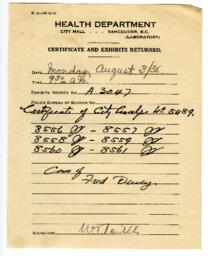 HEALTH DEPARTMENT
CITY HALL VANCOUVER, B.C.
(LABORATORY)
CERTIFICATE AND EXHIBITS RETURNED.
DATE Monday August 3/36
TIME 9 30 a.m.
EXHIBITS REPORT NO A 3047
POLICE BUREAU OF SCIENCE NO
Certificate of City Analyst No 5489.
8556 - 8557
8558 - 8559
8560 - 8561
Case of
Fred Dewey.
SIGNATURE